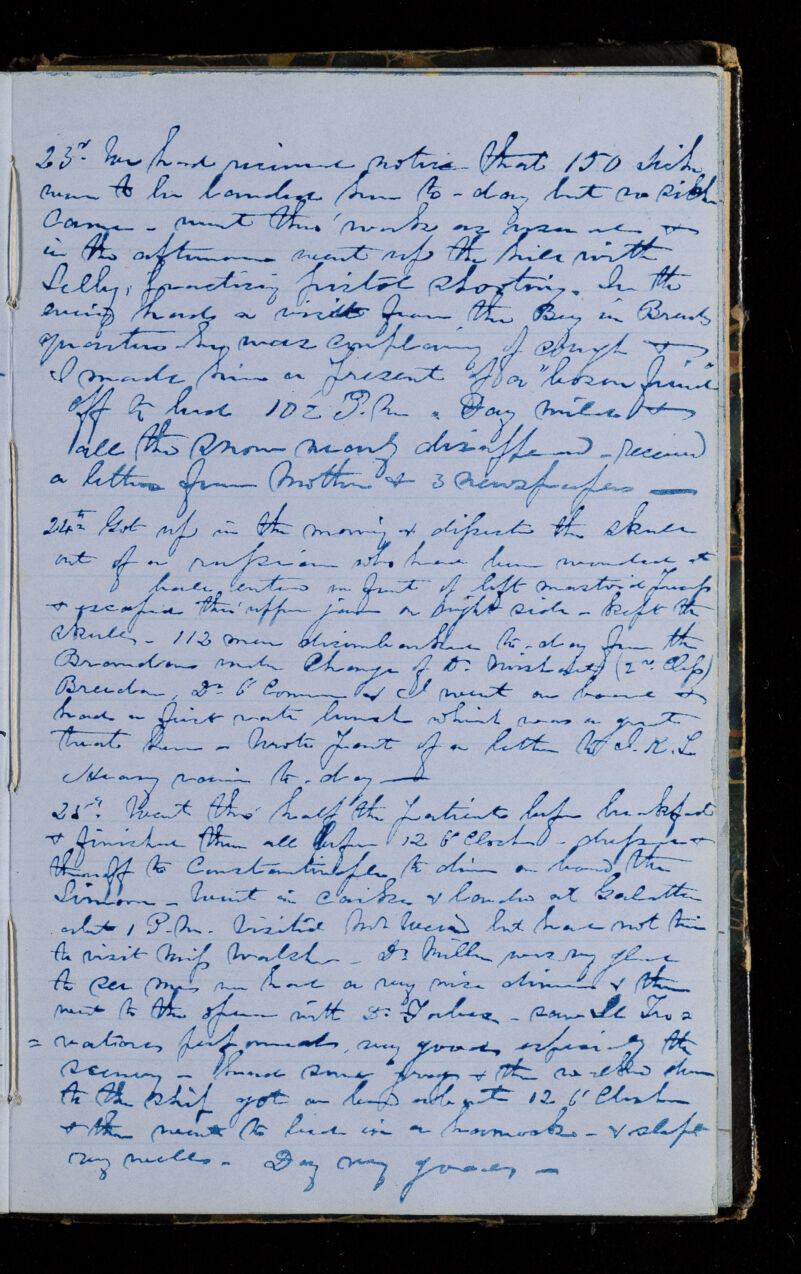 23rd. We had received notice that 150 sick
were to be landed here to-day but no sick
came - went thro' work as usual &
in the afternoon went up the hill with
Selby, practising pistol shooting. In the
evening had a visit from the Bey in
quarters he was complaining of cough &
I made him a present of a "bosom friend"
off to bed 10½ P.M. Day mild &
all the snow nearly disappeared - received
a letter from Mother & 3 newspapers —
24th Got up in the morning & dissected the skull
out of a russian who had been wounded at
ball entered in front of left mastoid process
& escaped thro' upper jaw on right side - kept the
skull - 112 men disembarked to-day from the
Brandon under charge of Dr.
Dr. O'Connor & I went on board &
had a first rate lunch which was a great
treat here - Wrote part of a letter to
Heavy rain to-day —
25th. Went thro' half the patients before breakfast
& finished them all before 12 O'Clock - dressed &
then off to Constantinople, to dine on board the
Simoom - Went in caique & landed at Galatta
about 1 P.M. Visited but had not time
to visit Miss Walsh - Dr. Miller was very glad
to see me, we had a very nice dinner & then
went to the opera with Dr. Forbes - saw Il Tro=
=vatore performed, very good especially the
scenery - had some grog & then walked down
to the ship got on board about 12 O'Clock
& then went to bed in a hammock - & slept
very well - Day very good —